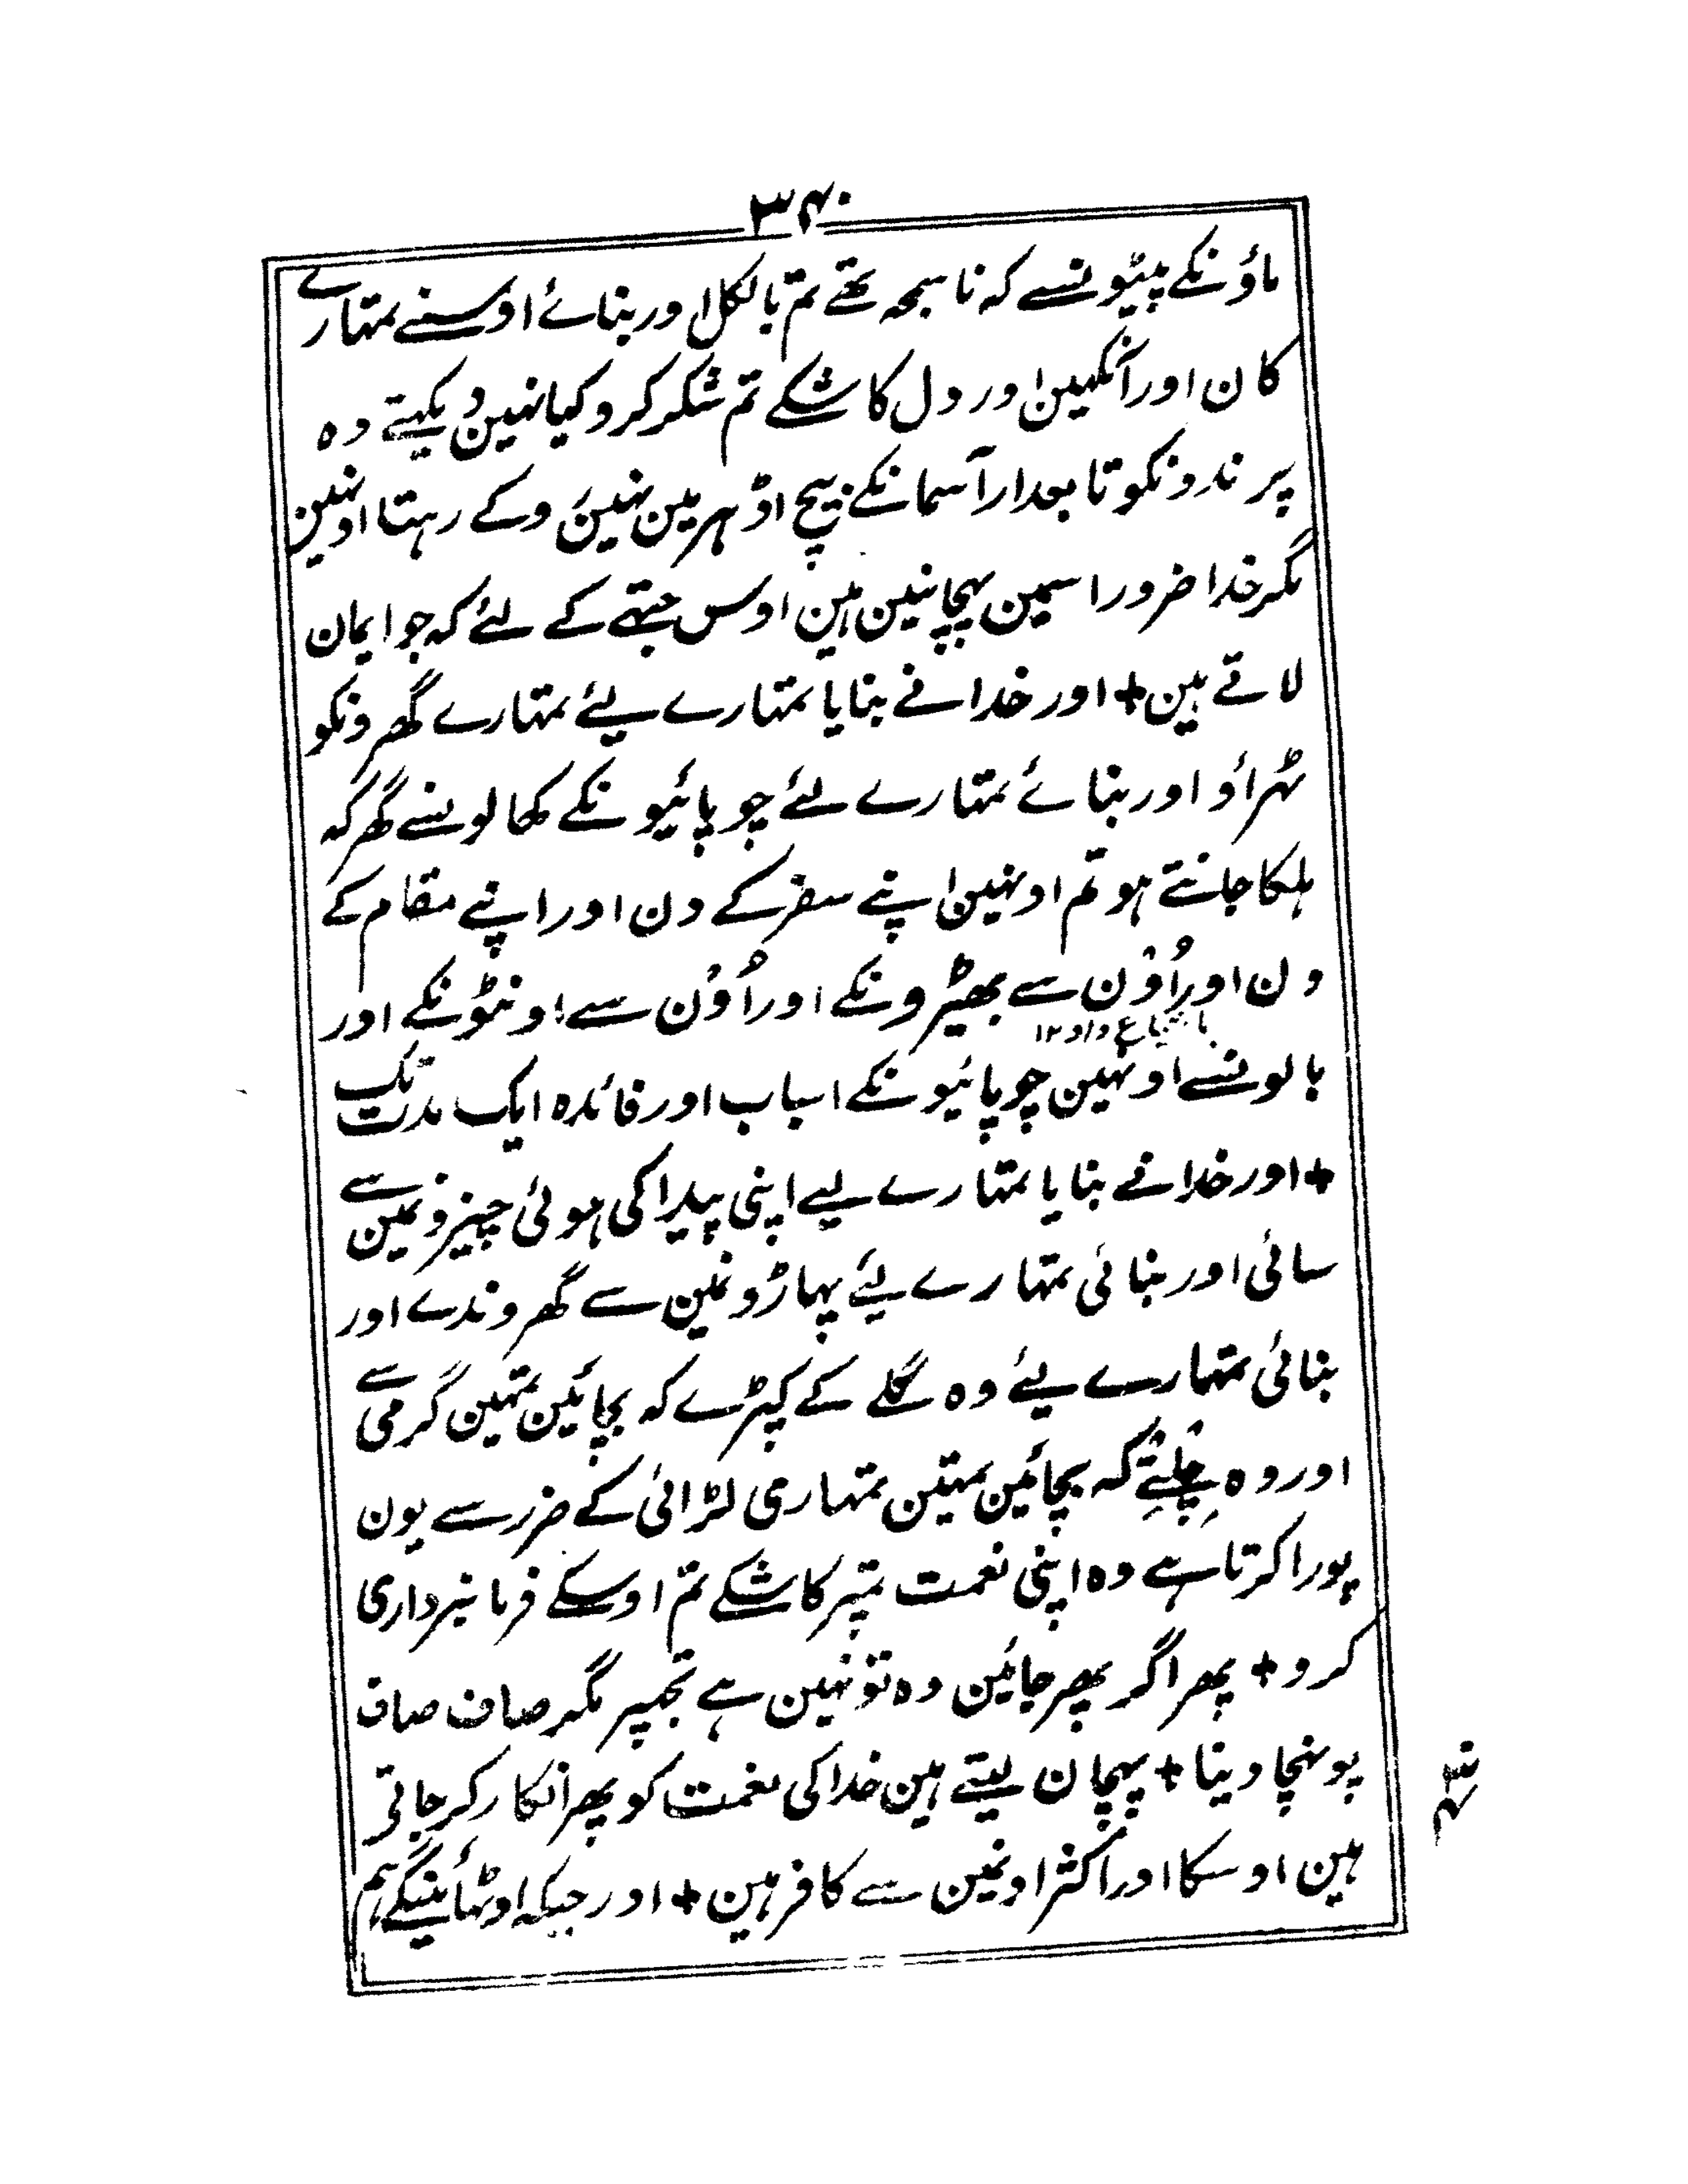 ۳۴۰
ماؤنکے پیٹونسے کہ ناسمجھ تھے تم بالکل اور بنائے اوسنے تمہارے
کان اور آنکھین اور دل کاشکے تم شکر کرو کیا نہین دیکہتے وہ
پرندونکو تابعدار آسمانکے بیچ اوڈہر مین نہین روکے رہتا اونہین
مگر خدا ضرور اسمین پہچانین ہین اوس جتھے کے لئے کہ جو ایمان
لاتے ہین + اور خدا نے بنایا تمہارے لیئے تمہارے گھرونکو
ٹہراؤ اور بنائے تمہارے لئے چوپائیونکے کھالونسے گھر کہ
ہلکا جانتے ہو تم اونہین اپنے سفر کے دن اور اپنے مقام کے
دن اور اُوْن سے بھیڑونکے اور اُوْن سے اونٹونکے اور
باشباع واو ۱۲
بالونسے اونہین چوپائیونکے اسباب اور فائدہ ایک مدت تک
+ اور خدا نے بنایا تمہارے لیے اپنی پیدا کی ہوئی چیزونمین سے
سائی اور بنائی تمہارے لیئے پہاڑونمین سے گھروندے اور
بنائی تمہارے لیئے وہ گلے کے کپڑے کہ بچائین تمہین گرمی سے
اور وہ چِلتے کہ بچائین تمہین تمہاری لڑائی کے ضرر سے یون
پورا کرتا ہے وہ اپنی نعمت تمپر کاشکے تم اوسکے فرمانبرداری
کرو + پھر اگر پھر جائین وہ تو نہین ہے تجھپر مگر صاف صاف
پونہچا دینا + پہچان لیتے ہین خدا کی نعمت کو پھر انکار کر جاتی
ہین اوسکا اور اکثر اونمین سے کافر ہین + اور جبکہ اوٹھائینگے ہم